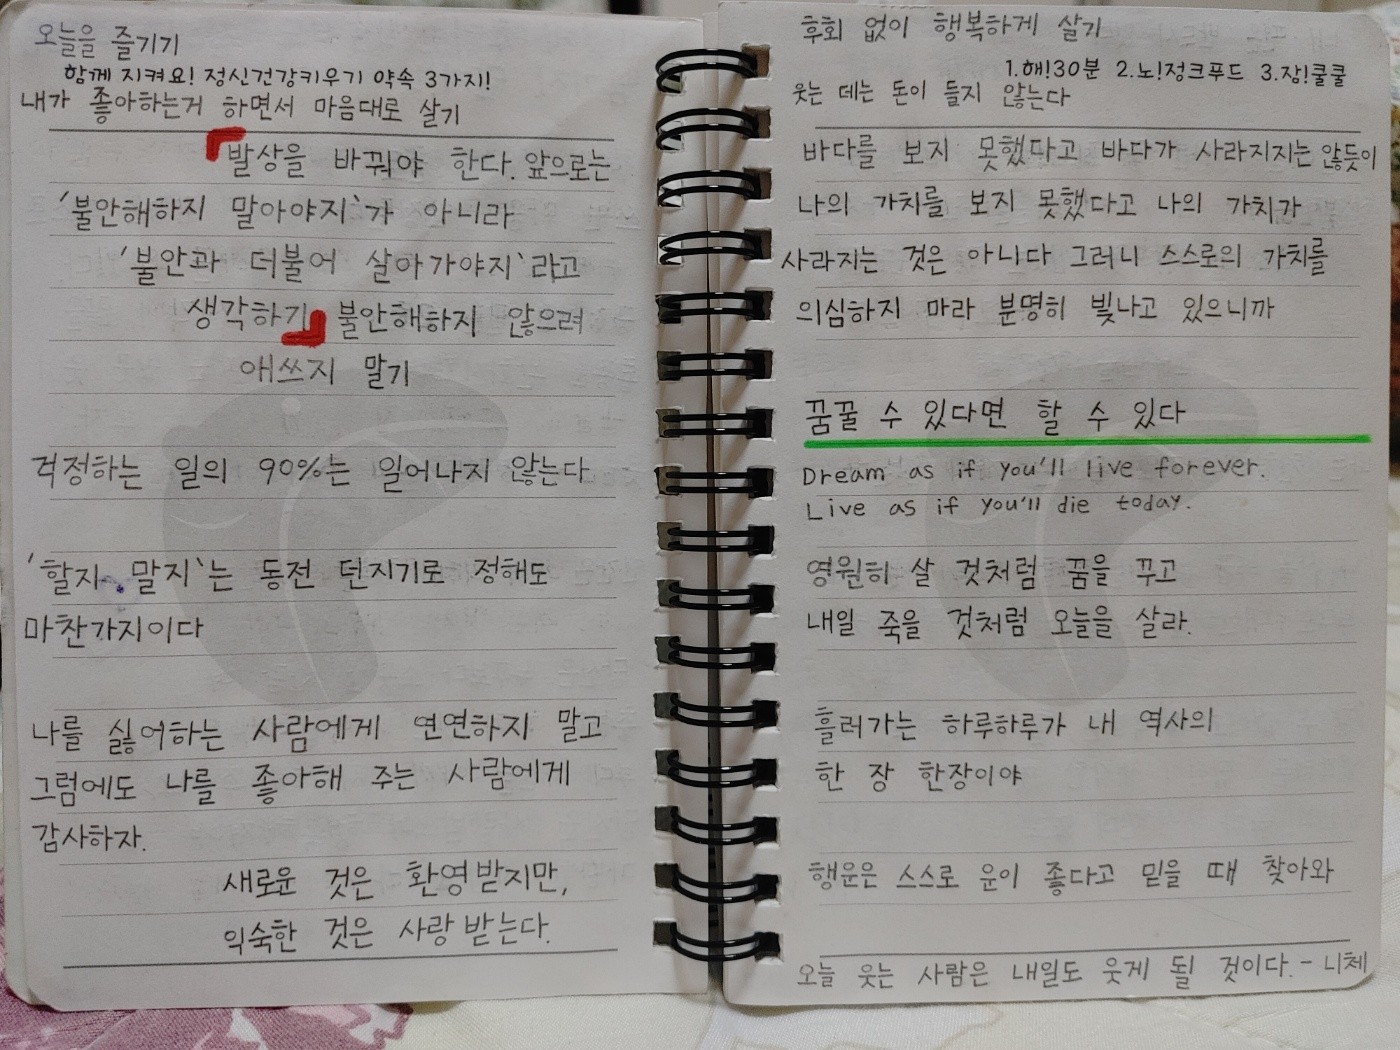 오늘을 즐기기
함께 지켜요! 정신건강키우기 약속 3가지!
내가 좋아하는거 하면서 마음대로 살기
「발상을 바꿔야 한다. 앞으로는
'불안해하지 말아야지'가 아니라
'불안과 더불어 살아가야지'라고
생각하기」 불안해하지 않으려
애쓰지 말기
걱정하는 일의 90%는 일어나지 않는다
'할지 말지'는 동전 던지기로 정해도
마찬가지이다
나를 싫어하는 사람에게 연연하지 말고
그럼에도 나를 좋아해 주는 사람에게
감사하자.
새로운 것은 환영받지만,
익숙한 것은 사랑받는다.
후회 없이 행복하게 살기
1.해!30분 2.노!정크푸드 3.잠!쿨쿨
웃는 데는 돈이 들지 않는다
바다를 보지 못했다고 바다가 사라지지는 않듯이
나의 가치를 보지 못했다고 나의 가치가
사라지는 것은 아니다 그러니 스스로의 가치를
의심하지 마라 분명히 빛나고 있으니까
꿈꿀 수 있다면 할 수 있다
Dream as if you'll live forever.
Live as if you'll die today.
영원히 살 것처럼 꿈을 꾸고
내일 죽을 것처럼 오늘을 살라.
흘러가는 하루하루가 내 역사의
한 장 한장이야
행운은 스스로 운이 좋다고 믿을 때 찾아와
오늘 웃는 사람은 내일도 웃게 될 것이다. - 니체